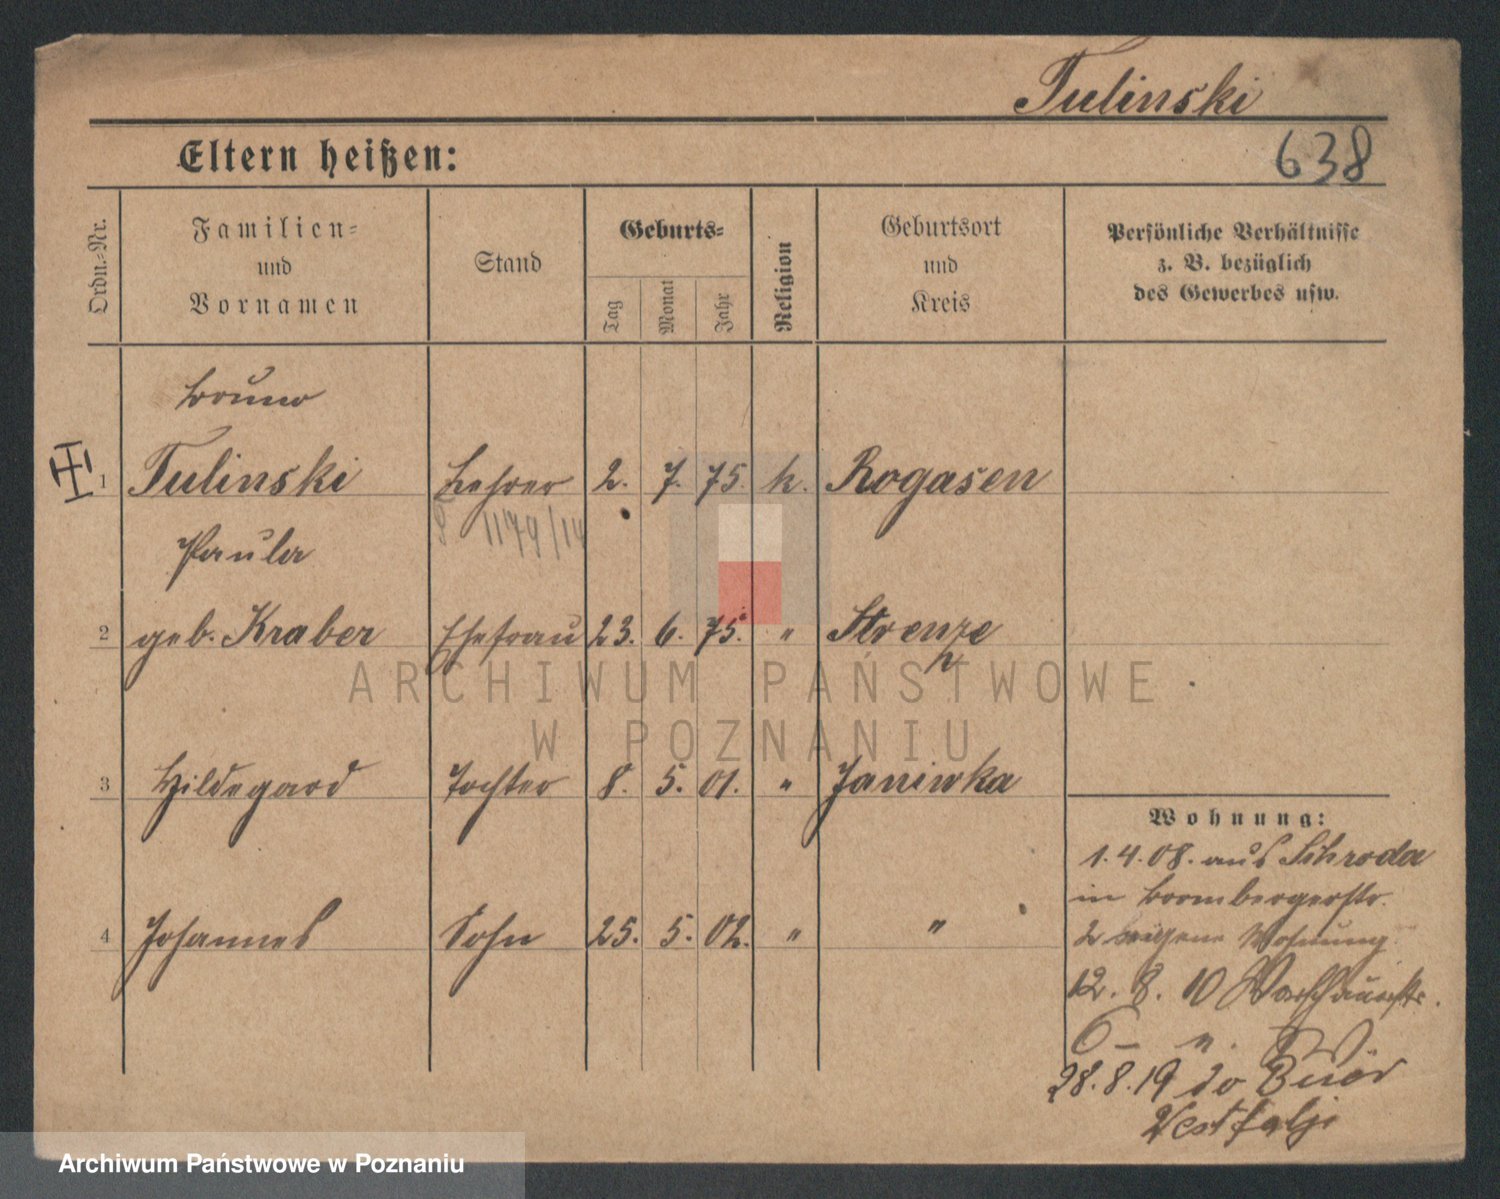 Tulinski
Eltern heißen:
638
Ordn.-Nr.
Familien-
und
Vornamen
Stand
Geburts-
Tag
Monat
Jahr
Religion
Geburtsort
und
Kreis
Persönliche Verhältnisse
z. B. bezüglich
des Gewerbes usw.
Bruno
1 Tulinski Lehrer 2. 7. 75. k. Rogasen
1179/14
Paula
2 geb. Kraber Ehefrau 23. 6. 75. " Strenze
3 Hildegard Tochter 8. 5. 01. " Janiwka
Wohnung:
1.4.08. aus Schroda
in Brombergerstr.
4 Johannes Sohn 25. 5. 02. " "
2 eigene Wohnung
12. 8. 10 Warschauerstr.
6
28.8.19 do Buer
Westfalji
ARCHIWUM PAŃSTWOWE
W POZNANIU
Archiwum Państwowe w Poznaniu